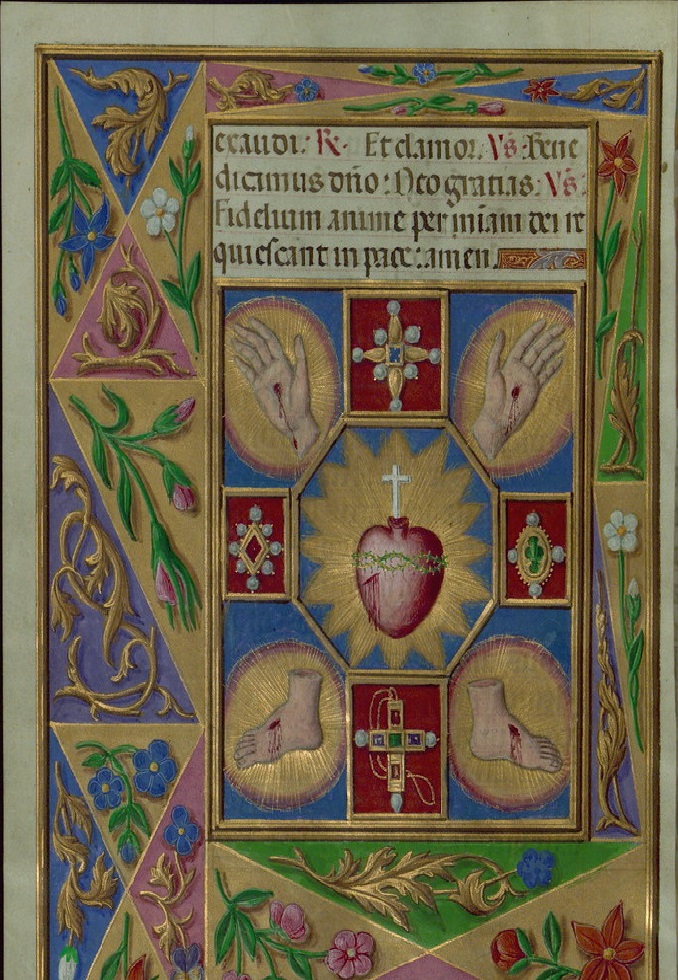 exaudi: R. Et clamor. Vs: Bene
dicimus dño: Deo gratias: Vs:
Fidelium anime per miam dei re
quiescant in pace: amen.